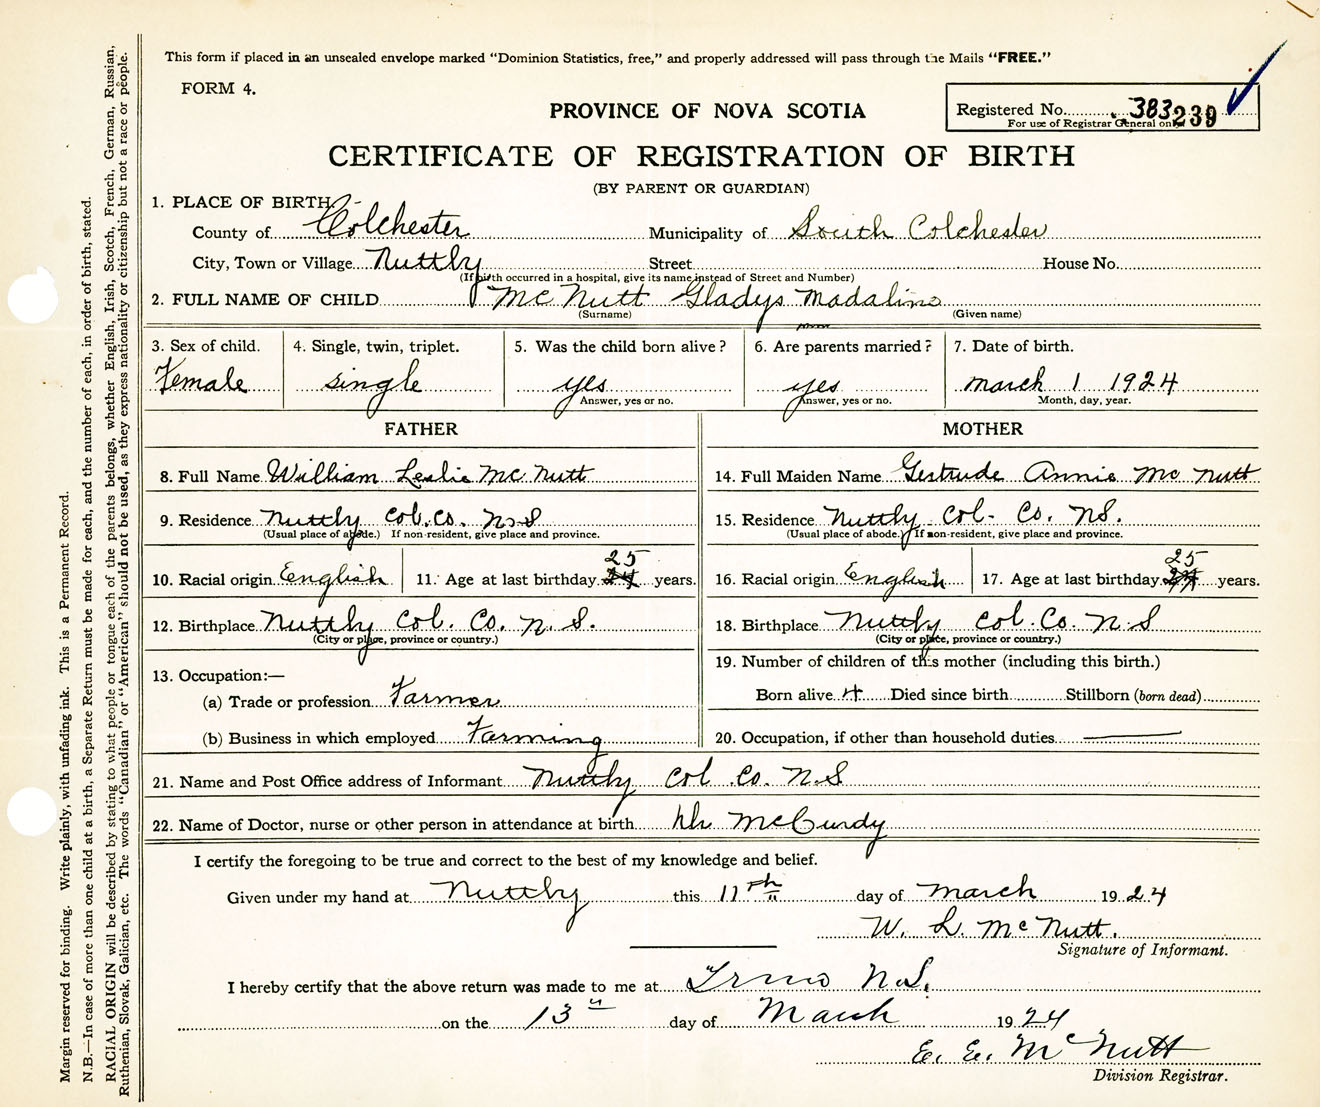 This form if placed in an unsealed envelope marked "Dominion Statistics, free," and properly addressed will pass through the Mails "FREE."
FORM 4.
Registered No. 383239
For use of Registrar General only
PROVINCE OF NOVA SCOTIA
CERTIFICATE OF REGISTRATION OF BIRTH
(BY PARENT OR GUARDIAN)
1. PLACE OF BIRTH:-
County of Colchester Municipality of South Colchester
City, Town or Village Nuttby Street House No.
(If birth occurred in a hospital, give its name instead of Street and Number)
2. FULL NAME OF CHILD McNutt Gladys Madaline
(Surname) (Given name)
3. Sex of child. 4. Single, twin, triplet. 5. Was the child born alive? 6. Are parents married? 7. Date of birth.
Female single yes yes March 1 1924
Answer, yes or no. Answer, yes or no. Month, day, year.
FATHER MOTHER
8. Full Name William Leslie McNutt 14. Full Maiden Name Gertrude Annie McNutt
9. Residence Nuttby Col. Co. N.S 15. Residence Nuttby Col- Co. N.S.
(Usual place of abode.) If non-resident, give place and province. (Usual place of abode.) If non-resident, give place and province.
25 25
10. Racial origin English 11. Age at last birthday 24 years. 16. Racial origin English 17. Age at last birthday years.
12. Birthplace Nuttby Col. Co. N.S. 18. Birthplace Nuttby Col. Co. N.S
(City or place, province or country.) (City or place, province or country.)
13. Occupation:— 19. Number of children of this mother (including this birth.)
(a) Trade or profession Farmer Born alive 4 Died since birth Stillborn (born dead)
(b) Business in which employed Farming 20. Occupation, if other than household duties
21. Name and Post Office address of Informant Nuttby Col. Co. N.S
22. Name of Doctor, nurse or other person in attendance at birth Dr McCurdy
I certify the foregoing to be true and correct to the best of my knowledge and belief.
Given under my hand at Nuttby this 11th day of March 1924
W. L. McNutt.
Signature of Informant.
I hereby certify that the above return was made to me at Truro N.S.
on the 13 day of March 1924
E. E. McNutt
Division Registrar.
Margin reserved for binding. Write plainly, with unfading ink. This is a Permanent Record.
N.B.—In case of more than one child at a birth, a Separate Return must be made for each, and the number of each, in order of birth, stated.
RACIAL ORIGIN will be described by stating to what people or tongue each of the parents belongs, whether English, Irish, Scotch, French, German, Russian,
Ruthenian, Slovak, Galician, etc. The words "Canadian" or "American" should not be used, as they express nationality or citizenship but not a race or people.